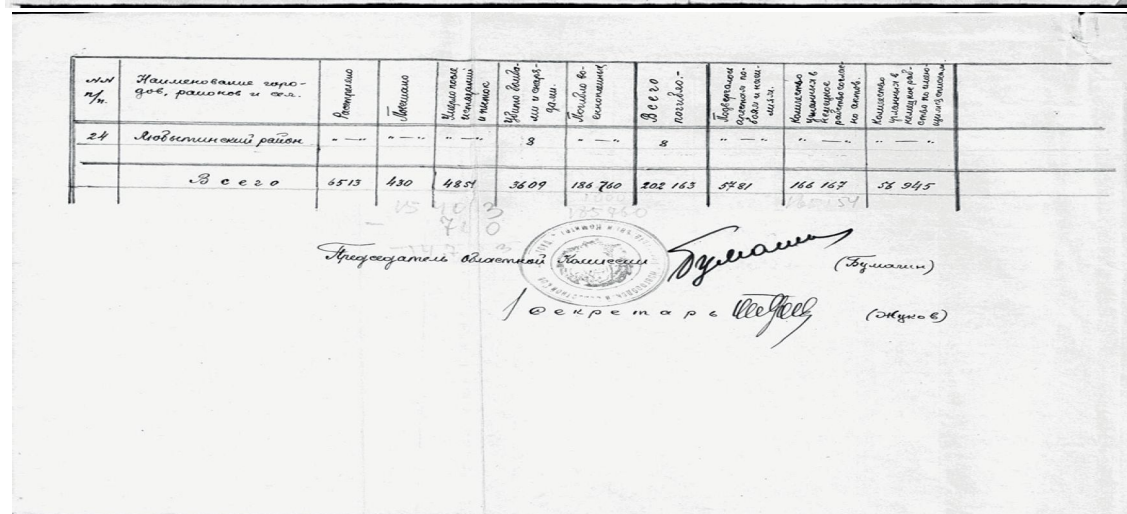 №№ п/п.
Наименование горо-
дов, районов и сел.
Расстреляно
Повешано
Умерло после
истязаний
и пыток
Убито бомба-
ми и снаря-
дами.
Погибло во-
еннопленных
Всего
погибло:-
Подвергалось
арестам по-
боям и наси-
лиям.
Количество
угнанных в
немецкое
рабство соглас-
но актов.
Количество
угнанных в
немецкое раб-
ство по
24 Любытинский район " — " " — " " — " 8 " — " 8 " — " " — " " — "
Всего 6513 430 4851 3609 186 760 202 163 5781 166 167 56 945
15 403
- 720
185960
166154
Председатель областной Комиссии (Бумагин)
Секретарь (Жуков)